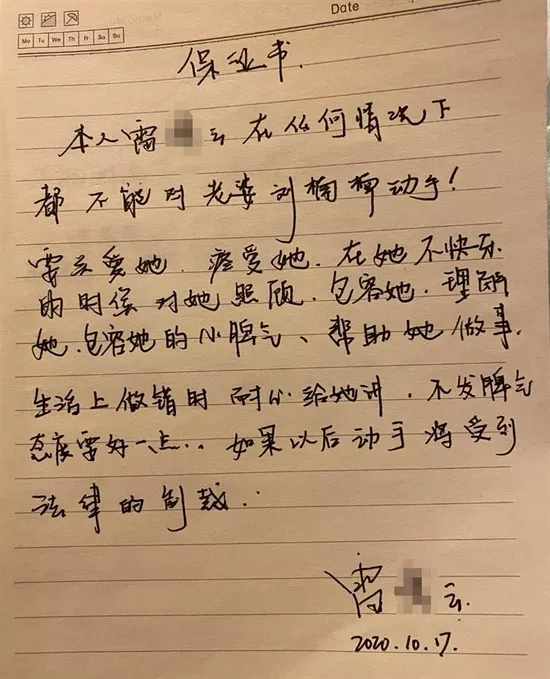 Date
Mo Tu We Th Fr Sa Su
保证书.
本人雷云在任何情况下
都不能对老婆刘楠楠动手!
要关爱她.疼爱她.在她不快乐
的时候对她照顾.包容她.理解
她.包容她的小脾气、帮助她做事.
生活上做错时耐心给她讲.不发脾气
态度要好一点..如果以后动手将受到
法律的制裁..
雷云.
2020.10.17.